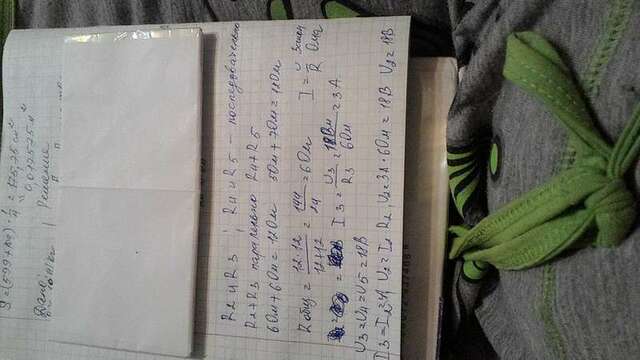 S=(599+100)·1/4=175,75 см²
0,017575 м²
Дано: Решение
R₂ и R₃ ; R₄ и R₅ – последовательно
R₂+R₃ паралельно R₄+R₅
6Ом+6Ом=12Ом 5Ом+7Ом=12Ом
Rобщ = 12·12/12+12 = 144/24 = 6Ом I = U/R Закон Ома
I₃ = U₃/R₃ = 18В/6Ом = 3А
U₃=U₄=U₅=18В
U₂=I₂ R₂, U₂=3А·6Ом=18В U₂=18В